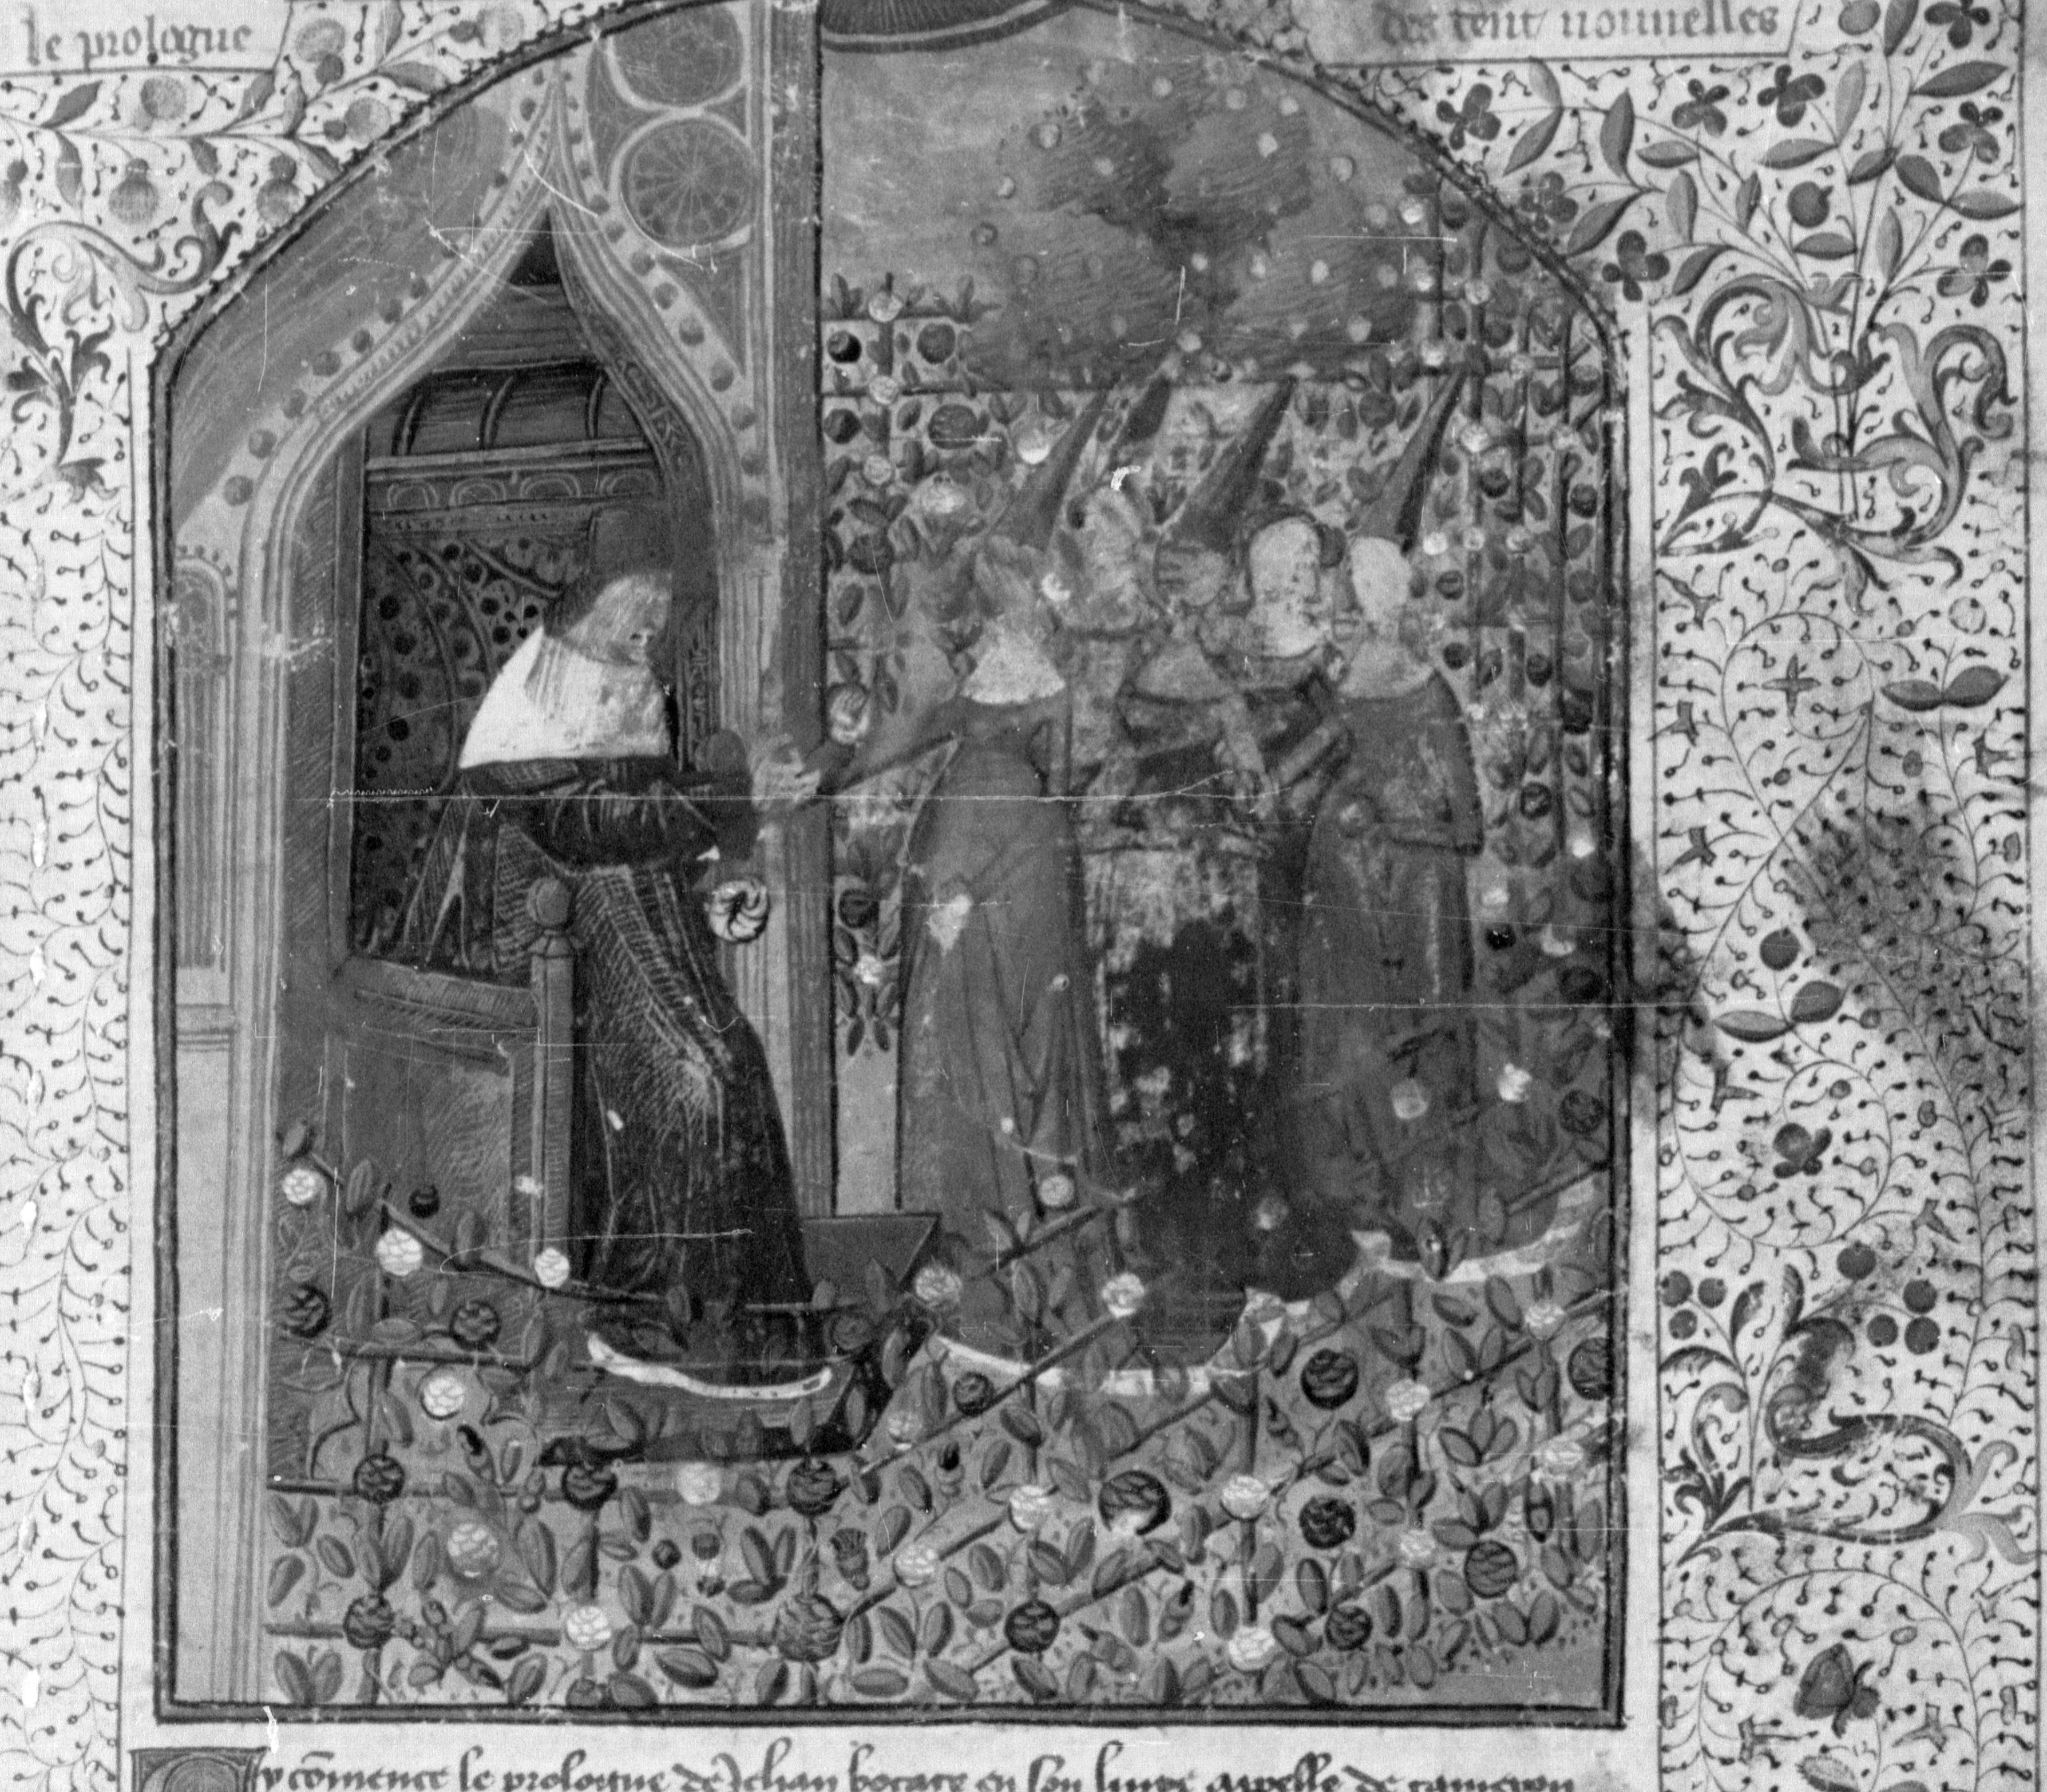 le prologue
des cent nouuelles
Cy cōmence le prologue de Jehan bocace en son liure appelle decameron